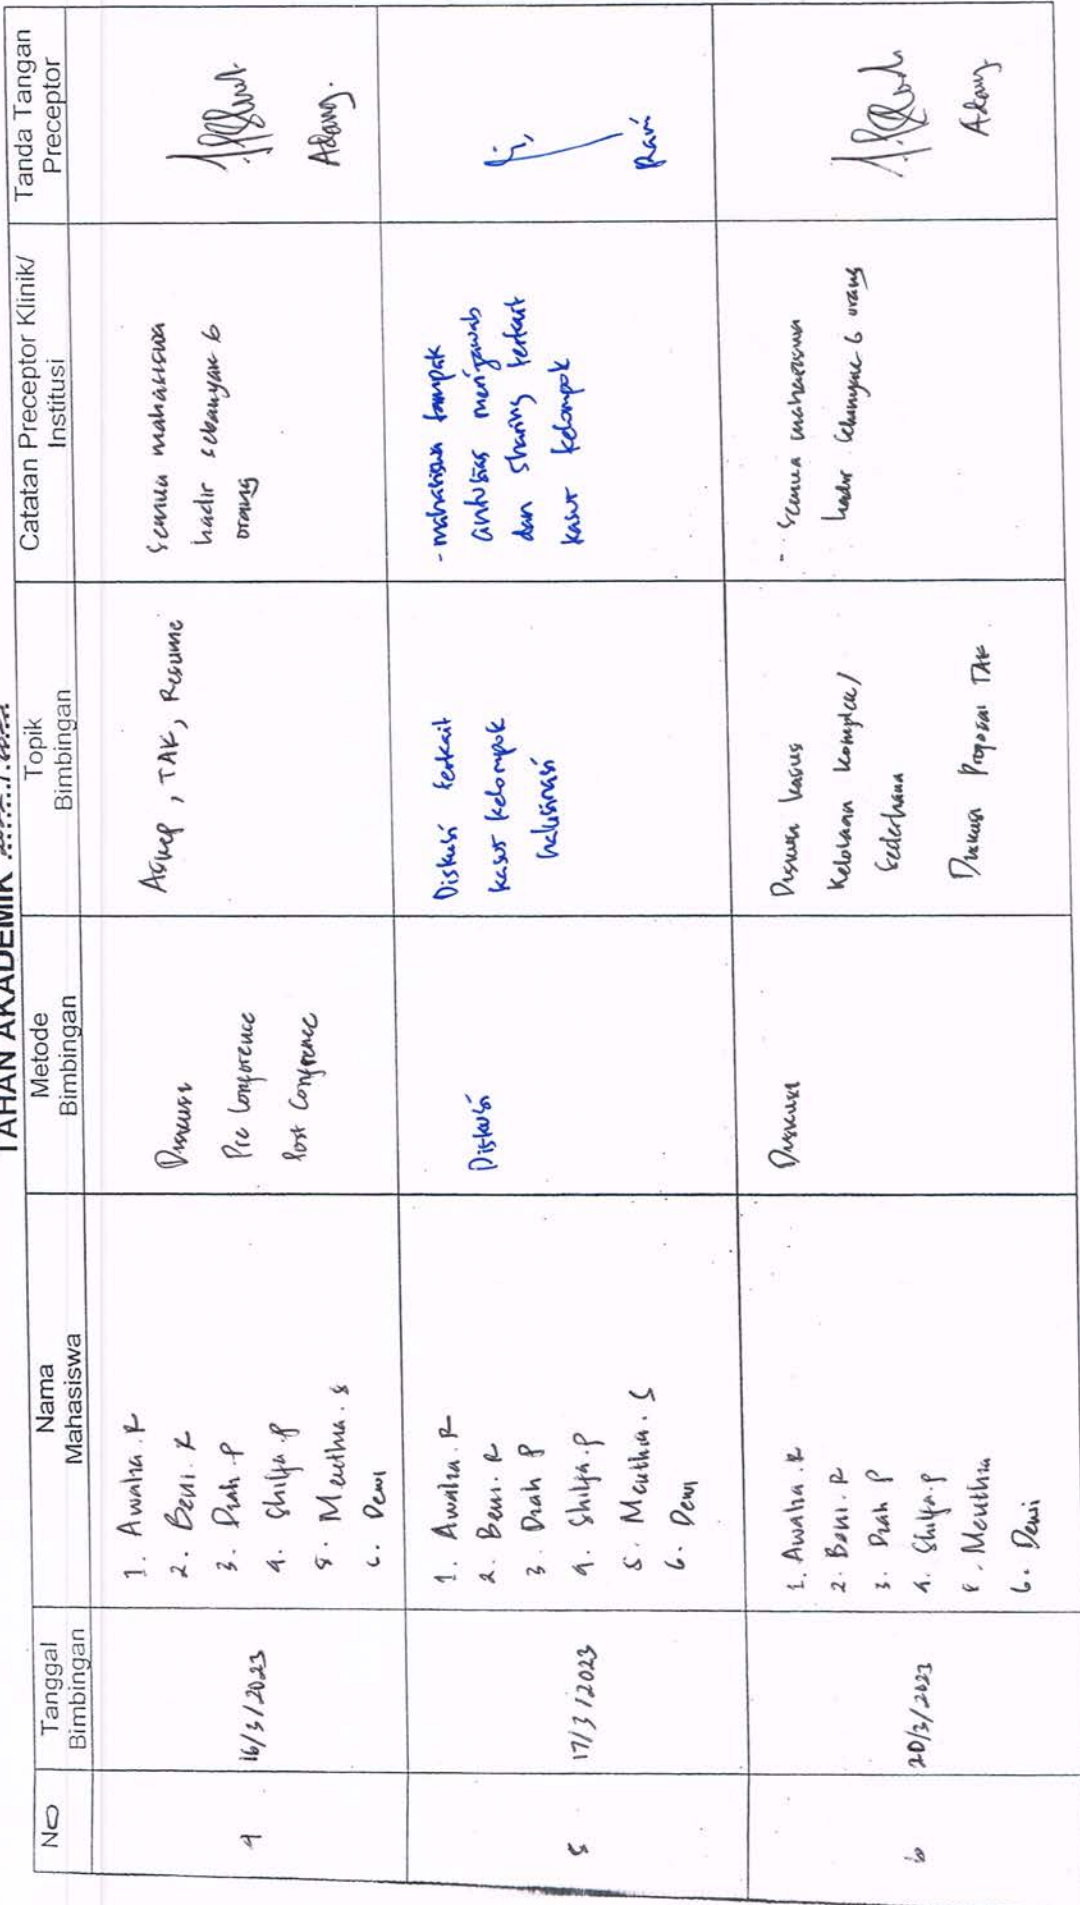 TAHAN AKADEMIK
NO
Tanggal
Bimbingan
Nama
Mahasiswa
Metode
Bimbingan
Topik
Bimbingan
Catatan Preceptor Klinik/
Institusi
Tanda Tangan
Preceptor
4
16/3/2023
1. Awalia . R
2. Beni . R
3. Diah . P
4. Shilfa . P
5. Meuthia . S
6. Dewi
Diskusi
Pre Conference
Post Conference
Askep , TAK , Resume
Semua mahasiswa
hadir sebanyak 6
orang
Adang.
5
17/3/2023
1. Awalia . R
2. Beni . R
3. Diah P
4. Shilfa . P
5. Meuthia . S
6. Dewi
Diskusi
Diskusi terkait
kasus kelompok
halusinasi
- mahasiswa tampak
antusias menjawab
dan sharing terkait
kasus kelompok
Rani
6
20/3/2023
1. Awalia . R
2. Beni . R
3. Diah P
4. Shilfa . P
5. Meuthia
6. Dewi
Diskusi
Diskusi kasus
Kelolaan komplex/
Sederhana
Diskusi Proposal TAK
- Semua mahasiswa
hadir sebanyak 6 orang
Adang